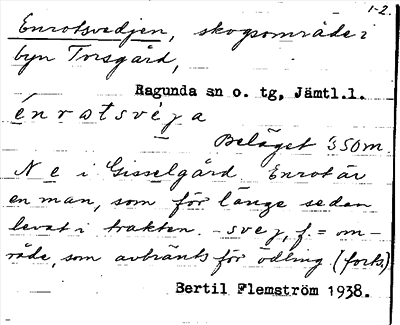 1-2.
Enrotsvedjen, skogsområde i
byn Torsgård,
Ragunda sn o. tg, Jämtl.l.
énrotsvèja
Beläget 350 m
N e i Gisselgård. Enrot är
en man, som för länge sedan
levat i trakten. - svej, f. = om-
råde, som avbränts för odling. (forts.)
Bertil Flemström 1938.